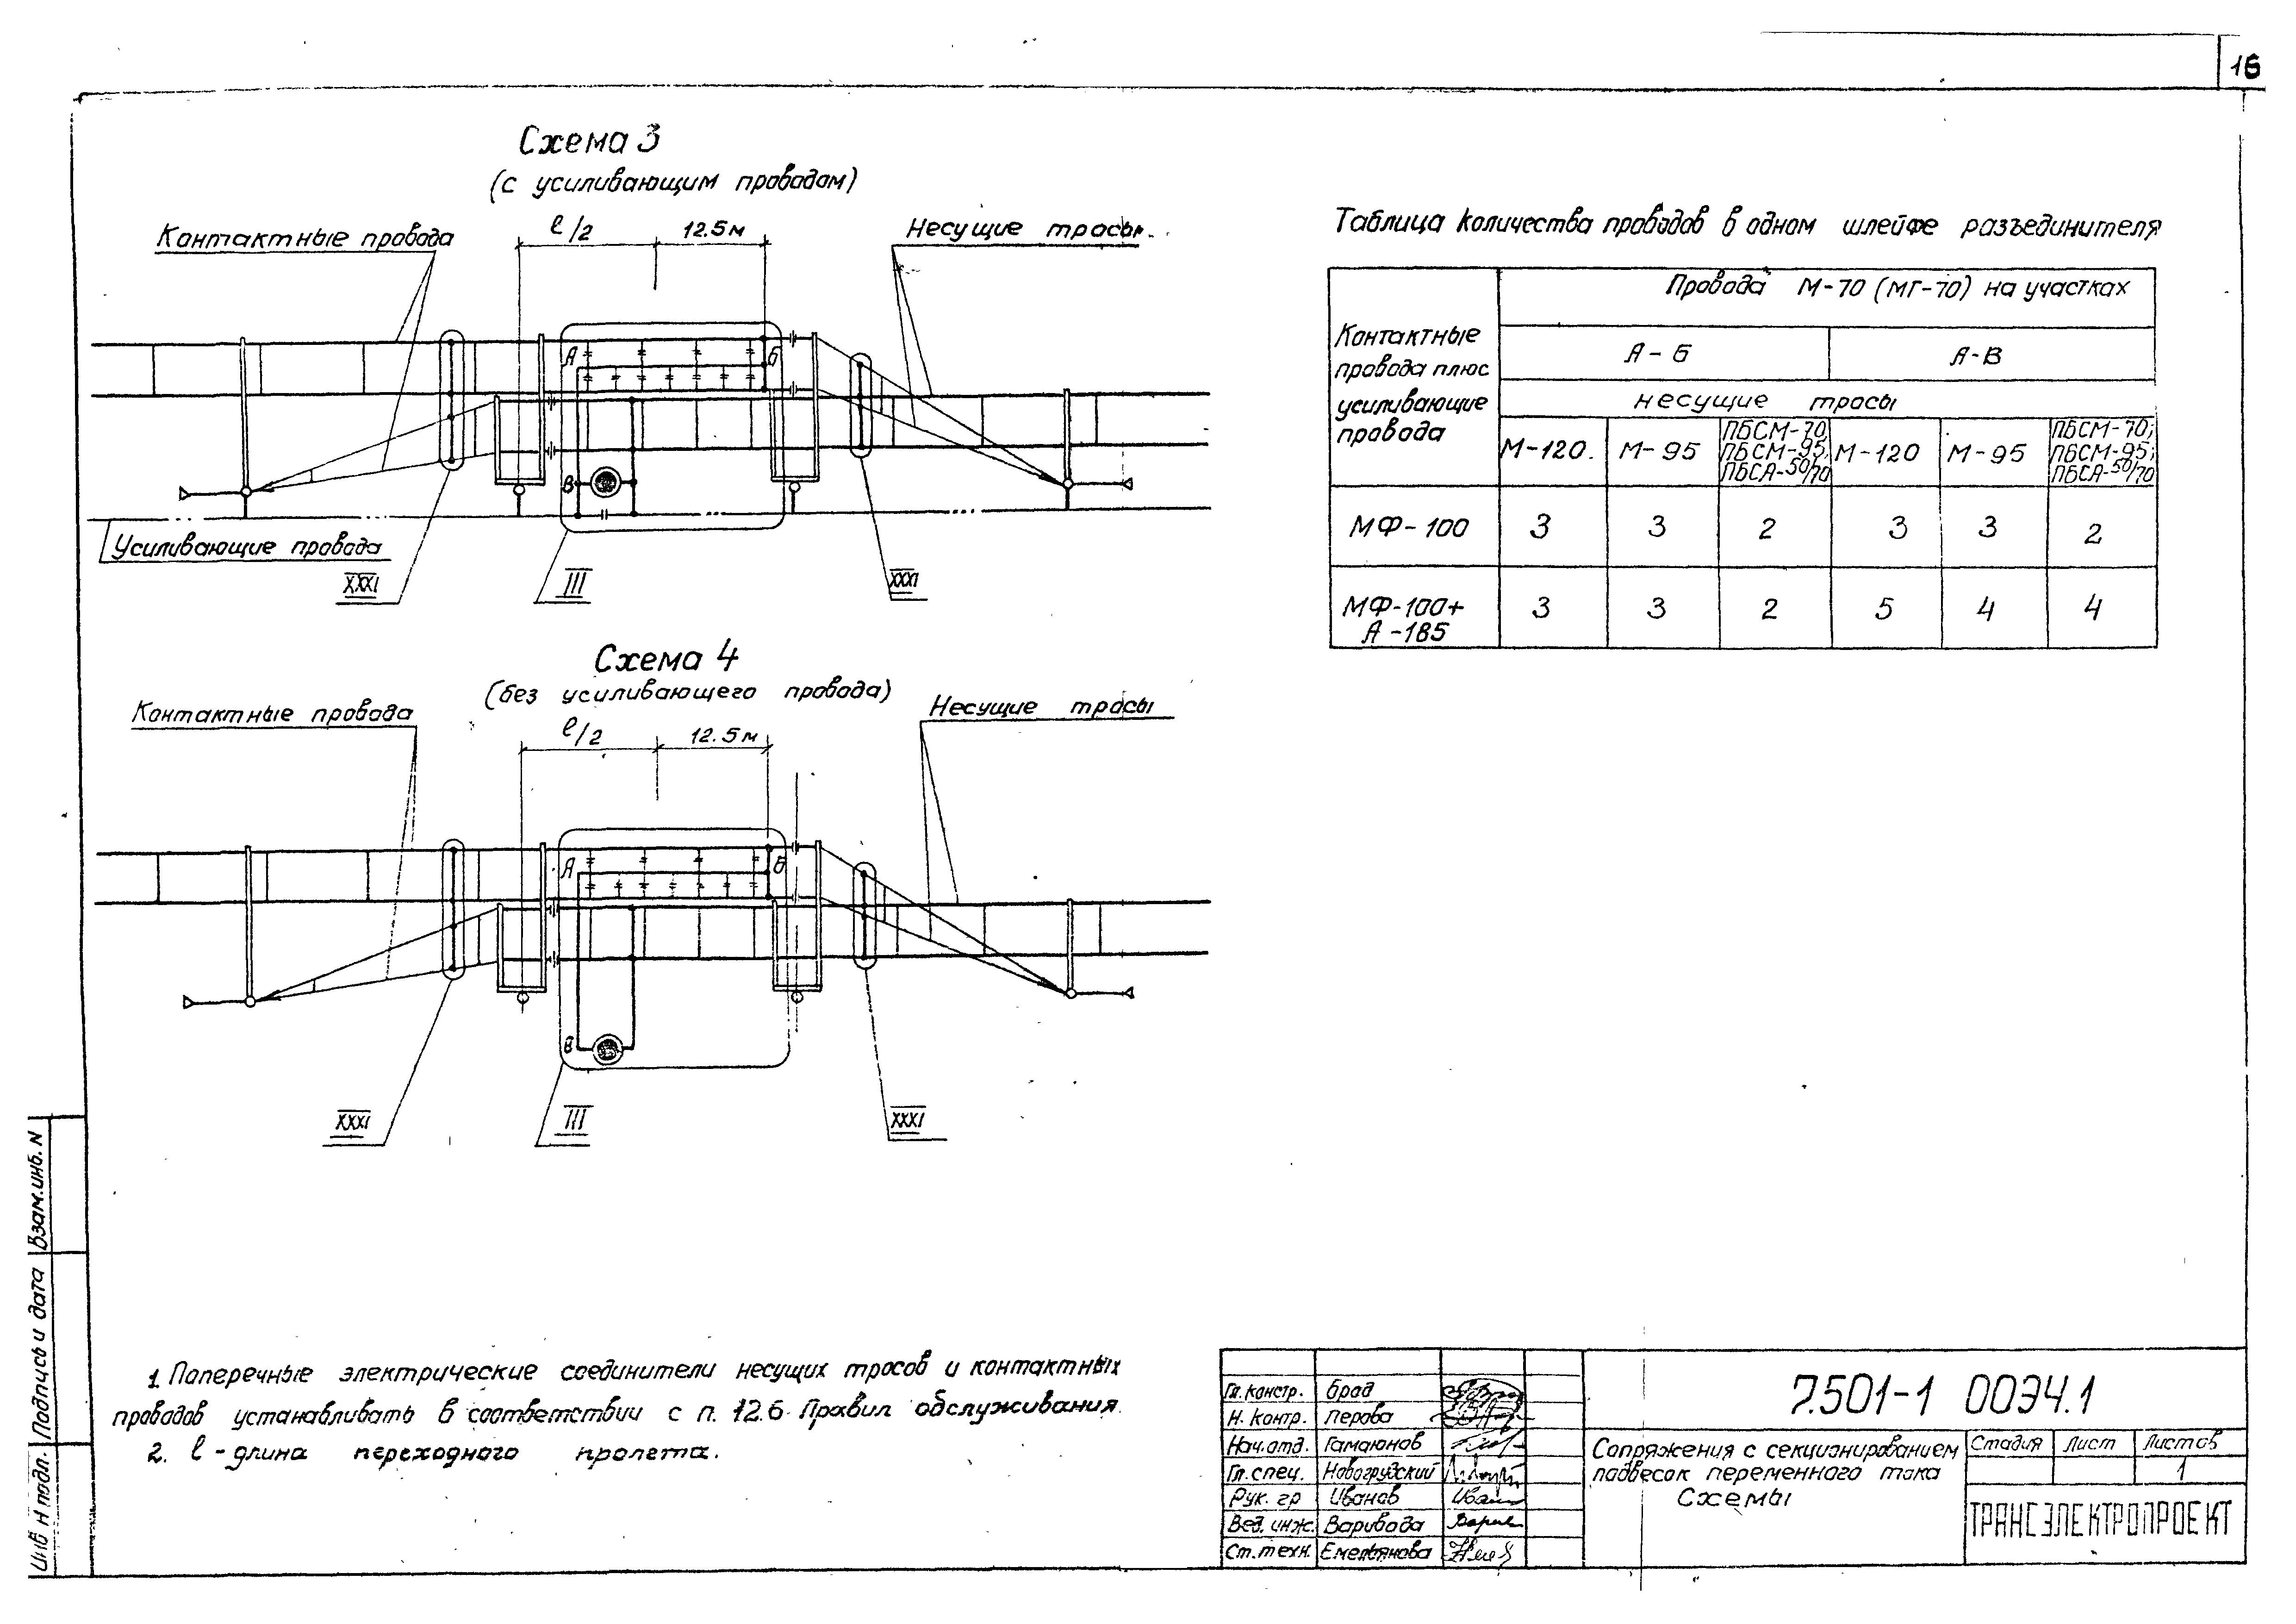 16
Схема 3
(с усиливающим проводом)
Контактные провода
ℓ/2
12.5м
Несущие тросы
А
Б
В
Усиливающие провода
XXXI
III
XXXI
Схема 4
(без усиливающего провода)
Контактные провода
ℓ/2
12.5м
Несущие тросы
А
Б
В
XXXI
III
XXXI
Таблица количества проводов в одном шлейфе разъединителя
Контактные
провода плюс
усиливающие
провода
Провода М-70 (МГ-70) на участках
А-Б
А-В
несущие тросы
М-120
М-95
ПБСМ-70,
ПБСМ-95,
ПБСА-50/70
М-120
М-95
ПБСМ-70;
ПБСМ-95;
ПБСА-50/70
МФ-100 3 3 2 3 3 2
МФ-100+
А-185
3 3 2 5 4 4
1. Поперечные электрические соединители несущих тросов и контактных
проводов устанавливать в соответствии с п. 12.6 Правил обслуживания.
2. ℓ - длина переходного пролета.
Инв N подл.
Подпись и дата
Взам.инв. N
Гл. констр. Брад
Н. контр. Перова
Нач.отд. Гамаюнов
Гл. спец. Новогрудский
Рук. гр Иванов
Вед. инж. Варивода
Ст.техн. Емельянова
7.501-1 00Э4.1
Сопряжения с секционированием
подвесок переменного тока
Схемы
Стадия Лист Листов
1
ТРАНСЭЛЕКТРОПРОЕКТ